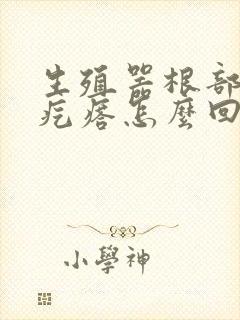 生殖器根部
疙瘩怎麼回
小學神